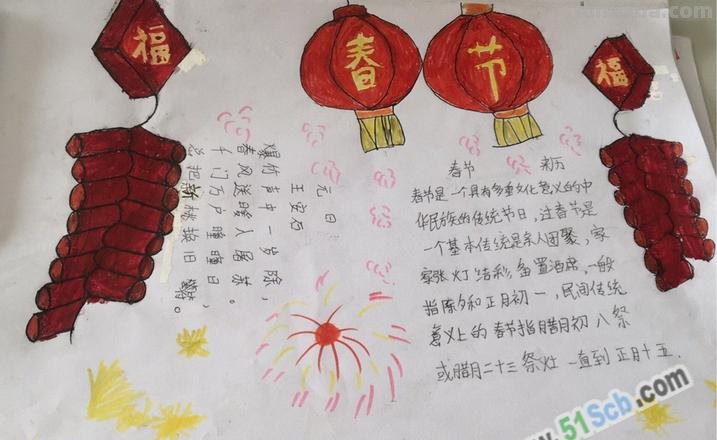 福
春
节
福
元日
王安石
爆竹声中一岁除，
春风送暖入屠苏。
千门万户曈曈日，
总把新桃换旧符。
春节 来历
春节是一个具有多重文化意义的中
华民族的传统节日，过春节是
一个基本传统是亲人团聚，家
家张灯结彩，备置酒席，一般
指除夕和正月初一，民间传统
意义上的春节指腊月初八祭
或腊月二十三祭灶一直到正月十五.
.51Scb.com